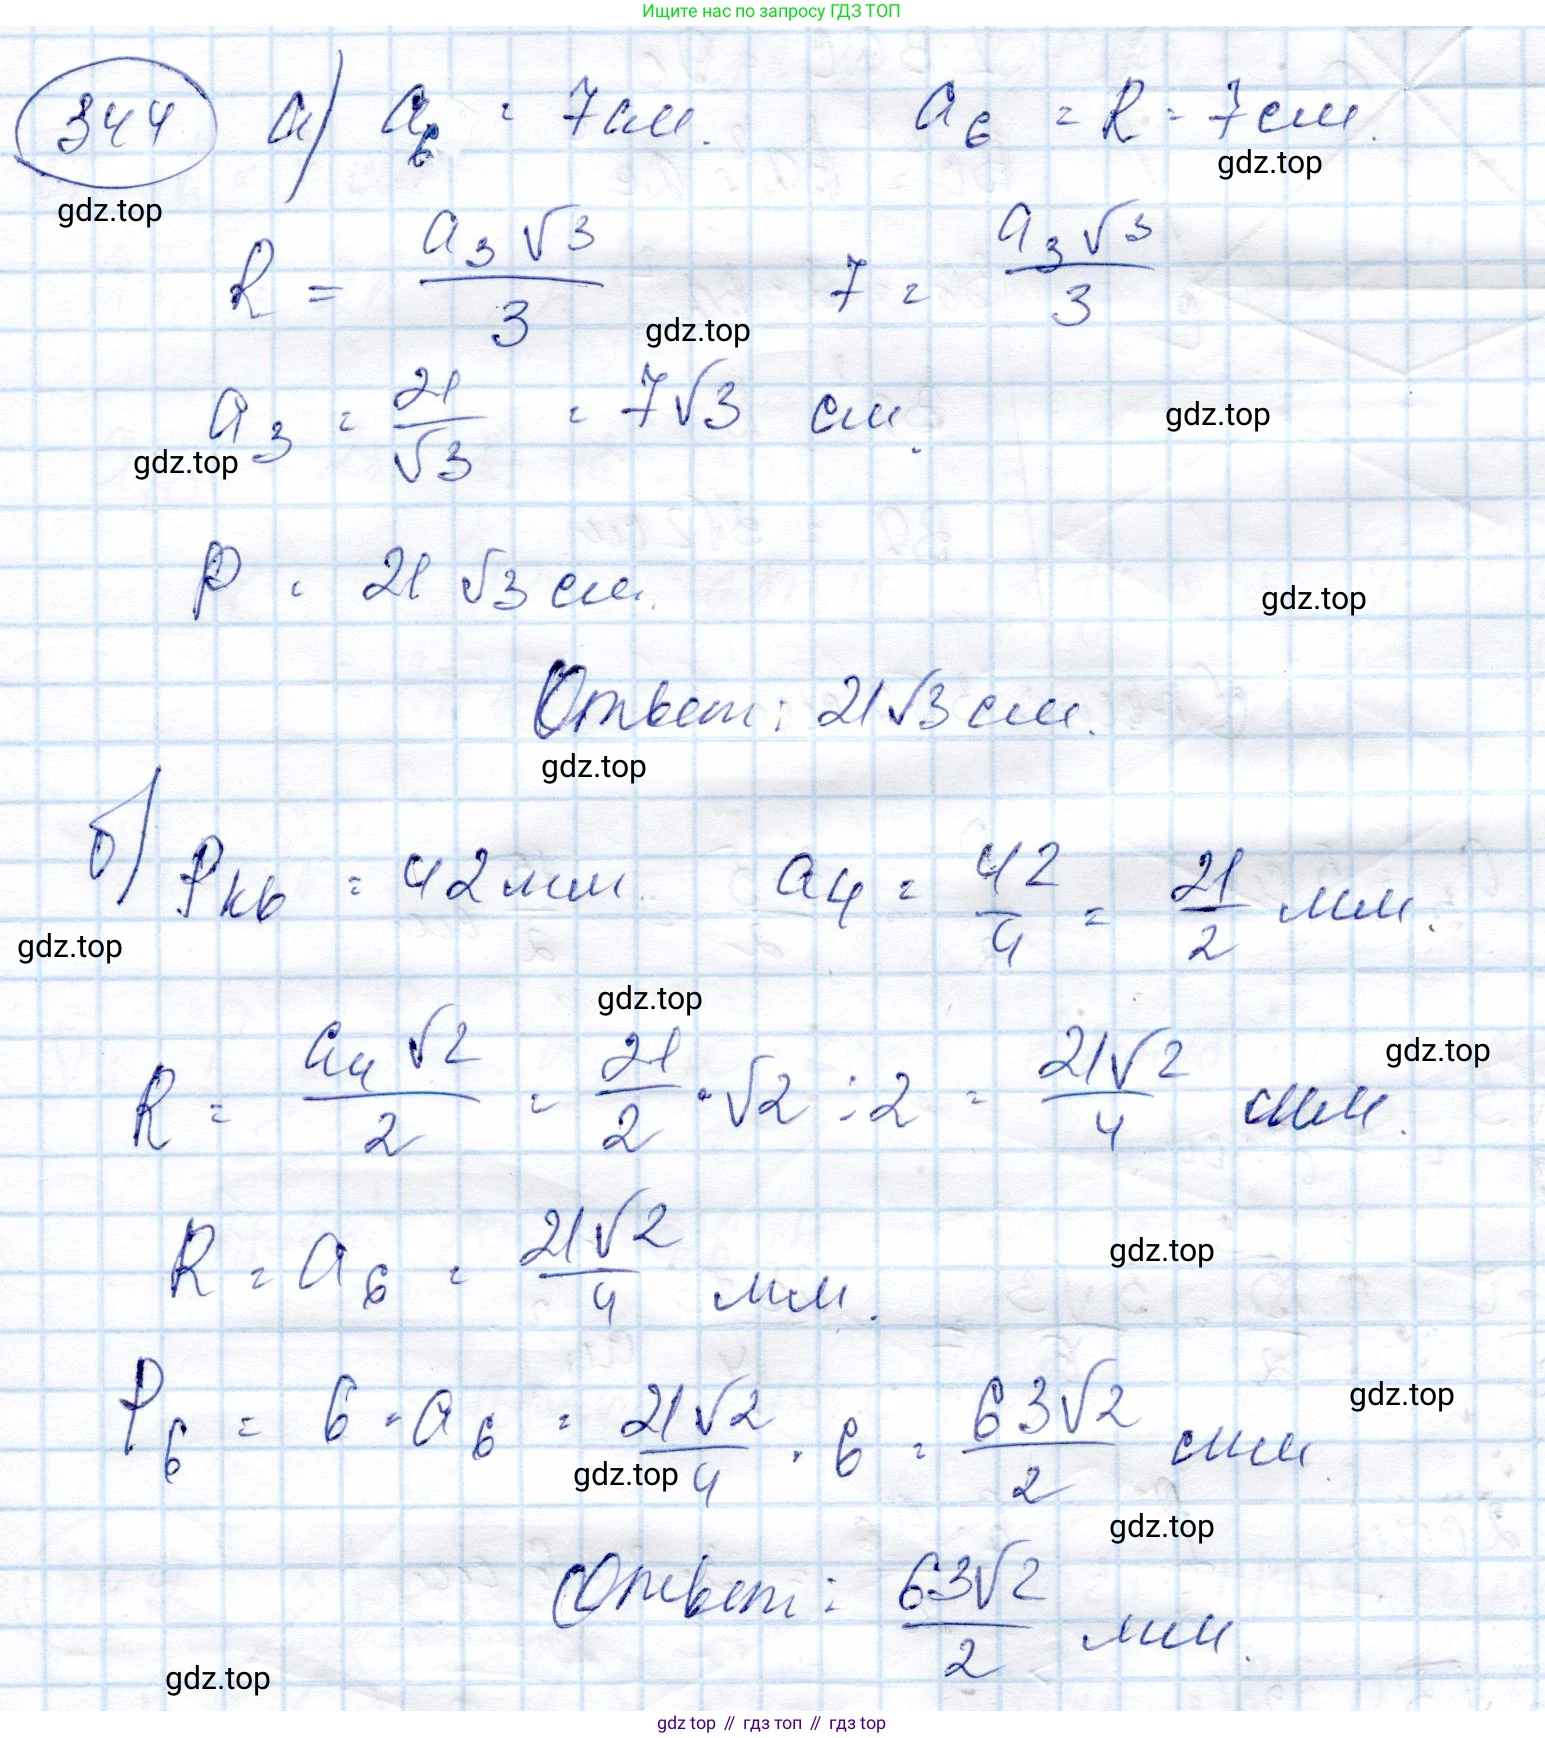 Ищите нас по запросу ГДЗ ТОП
344 а) a₆ = 7 см. a₆ = R = 7 см.
gdz.top
gdz.top
R = a₃√3/3 7 = a₃√3/3
gdz.top
a₃ = 21/√3 = 7√3 см.
gdz.top
gdz.top
P = 21√3 см.
gdz.top
Ответ: 21√3 см.
gdz.top
б) Pкв = 42 мм. a₄ = 42/4 = 21/2 мм.
gdz.top
gdz.top
R = a₄√2/2 = 21/2 · √2 : 2 = 21√2/4 мм.
gdz.top
R = a₆ = 21√2/4 мм.
gdz.top
P₆ = 6 · a₆ = 21√2/4 · 6 = 63√2/2 мм.
gdz.top
gdz.top
gdz.top
Ответ: 63√2/2 мм.
gdz.top
gdz top // гдз топ // гдз top